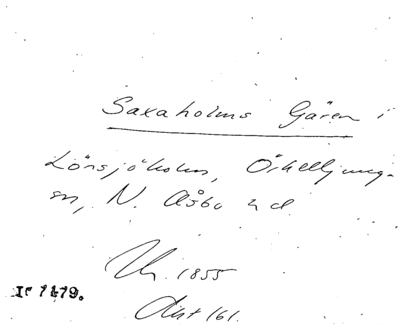 Saxaholms Gären i
Lönsjöholm, Örkelljung-
en, N. Åsbo hd
1855
Ir 7479.
161.